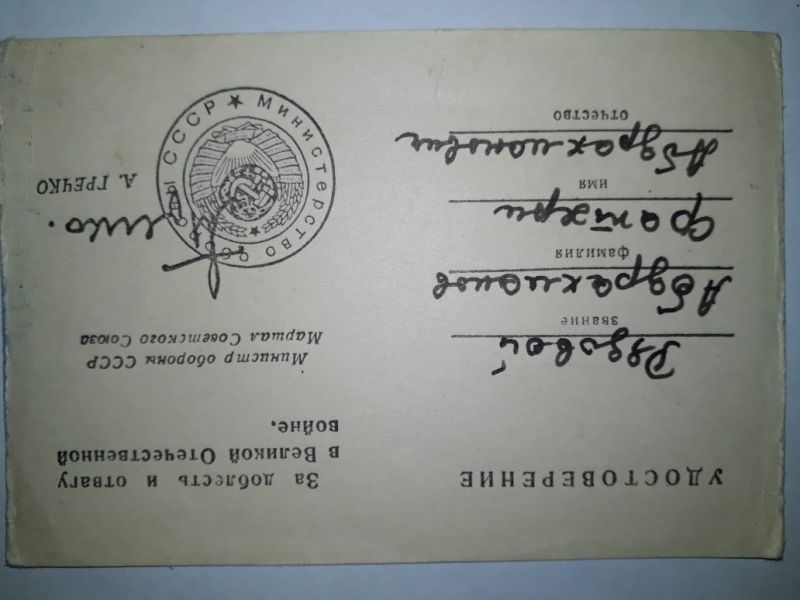 УДОСТОВЕРЕНИЕ
Рядовой
звание
Абдрахманов
фамилия
Фатхери
имя
Абдрахманович
отчество
За доблесть и отвагу
в Великой Отечественной
войне.
Министр обороны СССР
Маршал Советского Союза
А. ГРЕЧКО
Министерство обороны СССР